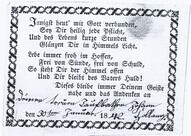 Innigst bet' mit Gott verbunden,
Sey Dir heilig jede Pflicht,
Und des Lebens kurze Stunden
Glänzen Dir in Himmels Licht.
Lebe immer froh im Hoffen,
Frei von Sünde, frei von Schuld,
So steht Dir der Himmel offen
Und Dir bleibt des Vaters Huld!
Dieses bleibe immer Deinem Geiste
nahe und das Andenken an
Deinen treuen Taufpathen
den 30ten Januar 18